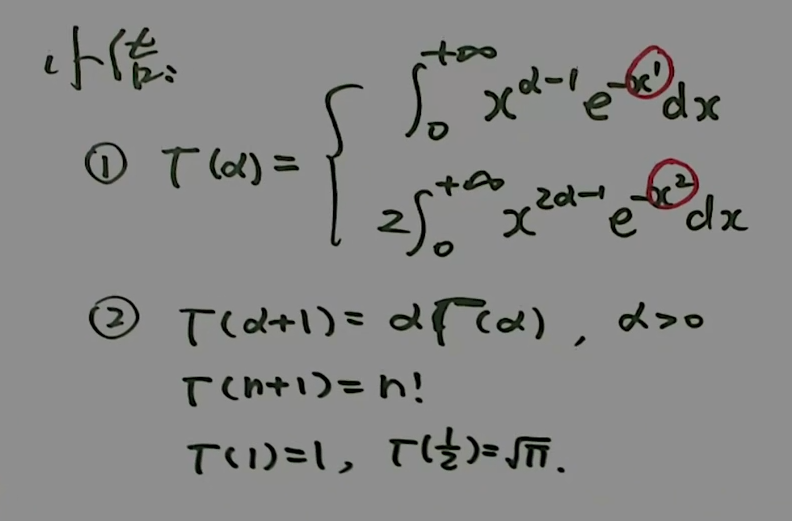 小结:
① Γ(α) = { ∫₀^{+∞} x^{α-1} e^{-x¹} dx
2∫₀^{+∞} x^{2α-1} e^{-x²} dx
② Γ(α+1) = αΓ(α), α>0
Γ(n+1) = n!
Γ(1)=1, Γ(½)=√π.